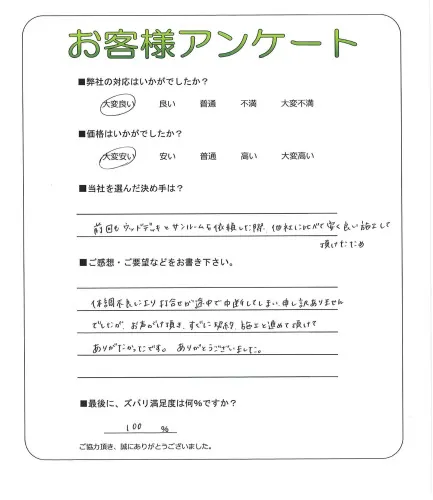 お客様アンケート
■弊社の対応はいかがでしたか？
大変良い 良い 普通 不満 大変不満
■価格はいかがでしたか？
大変安い 安い 普通 高い 大変高い
■当社を選んだ決め手は？
前回もウッドデッキとサンルームを依頼した際、他社に比べて安く良い施工して
頂けたため
■ご感想・ご要望などをお書き下さい。
体調不良により打合せが途中で中断してしまい申し訳ありません
でしたが、お声がけ頂き、すぐに契約、施工と進めて頂けて
ありがたかったです。ありがとうございました。
■最後に、ズバリ満足度は何％ですか？
100 ％
ご協力頂き、誠にありがとうございました。